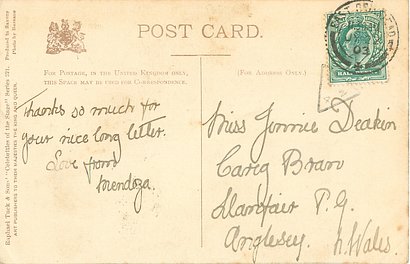 POST CARD.
FOR POSTAGE, IN THE UNITED KINGDOM ONLY,
THIS SPACE MAY BE USED FOR CORRESPONDENCE.
(FOR ADDRESS ONLY.)
Thanks so much for
your nice long letter.
Love from
Mendoza.
Miss Jennie Deakin
Careg Brân
Llanfair P.G.
Anglesey. N. Wales.
Raphael Tuck & Sons' "Celebrities of the Stage" Series 271.
ART PUBLISHERS TO THEIR MAJESTIES THE KING AND QUEEN.
Produced in Saxony
03
HAL